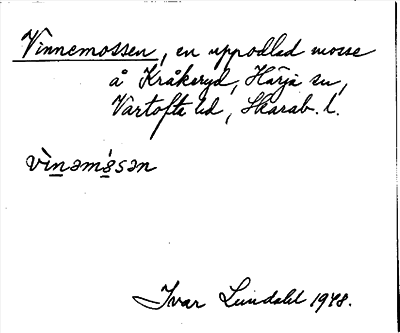 Vinnemossen, en uppodlad mosse
å Kråkeryd, Härja sn,
Vartofta hd, Skarab. l.
vìnəmɞ́sən
Ivar Lundahl 1948.